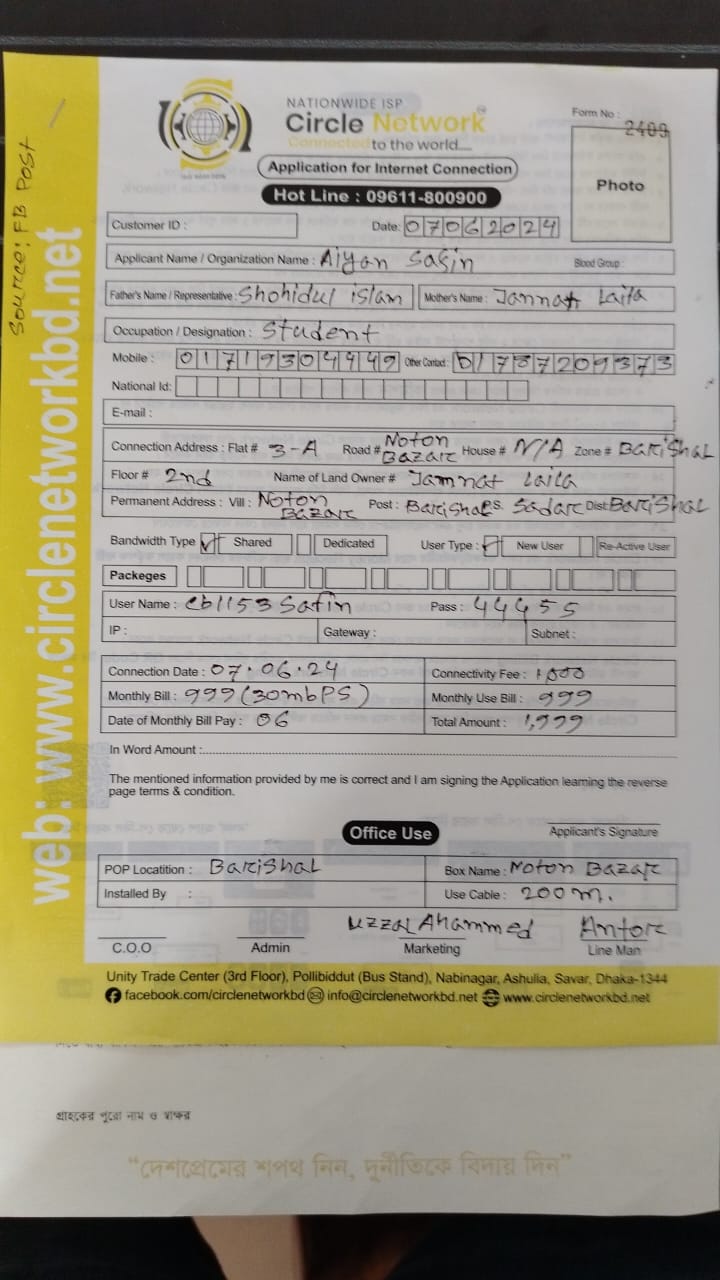 Source: FB Post
web: www.circlenetworkbd.net
NATIONWIDE ISP
Circle Network
Connected to the world....
Application for Internet Connection
Hot Line : 09611-800900
Form No : 2409
Photo
Customer ID :
Date: 07062024
Applicant Name / Organization Name : Aiyan Safin Blood Group :
Father's Name / Representative : Shohidul islam Mother's Name : Jannat Laila
Occupation / Designation : Student
Mobile : 01719304449 Other Contact : 01787209373
National Id:
E-mail :
Connection Address : Flat # 3-A Road # Noton Bazar House # N/A Zone # Barishal
Floor # 2nd Name of Land Owner # Jannat Laila
Permanent Address : Vill: Noton Bazar Post : Barishal P.S. Sadar Dist: Barishal
Bandwidth Type ✓ Shared Dedicated User Type : ✓ New User Re-Active User
Packeges
User Name : cb1153 Safin Pass : 44455
IP : Gateway : Subnet :
Connection Date : 07.06.24 Connectivity Fee : 1000
Monthly Bill : 999 (30mbps) Monthly Use Bill : 999
Date of Monthly Bill Pay : 06 Total Amount : 1,999
In Word Amount :
The mentioned information provided by me is correct and I am signing the Application learning the reverse
page terms & condition.
Office Use
Applicant's Signature
POP Locatition : Barishal Box Name : Noton Bazar
Installed By : Use Cable : 200m.
Uzzal Ahammed Antor
C.O.O Admin Marketing Line Man
Unity Trade Center (3rd Floor), Pollibiddut (Bus Stand), Nabinagar, Ashulia, Savar, Dhaka-1344
facebook.com/circlenetworkbd info@circlenetworkbd.net www.circlenetworkbd.net
গ্রাহকের পুরো নাম ও স্বাক্ষর
“দেশপ্রেমের শপথ নিন, দুর্নীতিকে বিদায় দিন”